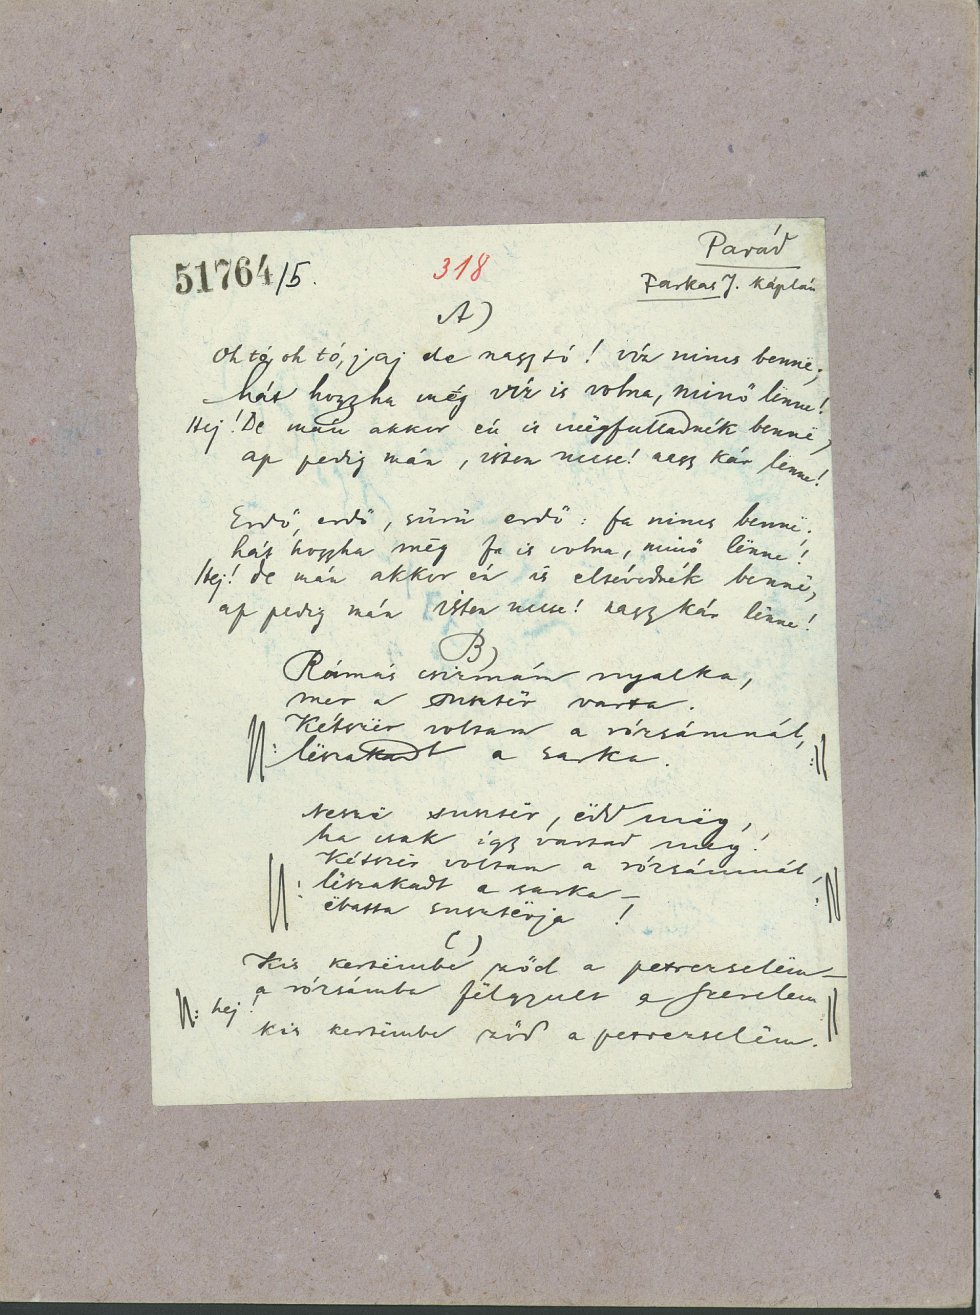 51764/5.
318
Parád
Farkas J. káplán
A)
Oh tó, oh tó, jaj de nagy tó! víz nincs bennë;
hát hogyha még víz is volna, minő lënne!
Hej! De mán akkor én is mëgfulladnék bennë,
ap pedig mán, isten ucse! nagy kár lënne!
Erdő, erdő, sűrű erdő: fa nincs bennë;
hát hogyha még fa is volna, minő lënne!
Hej! de mán akkor én is elsévednék bennë,
ap pedig mán isten ucse! nagy kár lënne!
B)
Rámás csizmám nyalka,
mer a susztër varta.
Kétszër voltam a rózsámnál,
lëszakadt a sarka.
Neszë susztër, ëdd mëg,
ha csak így vartad mëg!
Kétszër voltam a rózsámnál,
lëszakadt a sarka –
ëbatta susztërja!
C)
Kis kertëmbe ződ a petrezselëm –
hej! a rózsámba fëlgyult a szerelem
kis kertëmbe ződ a petrezselëm.